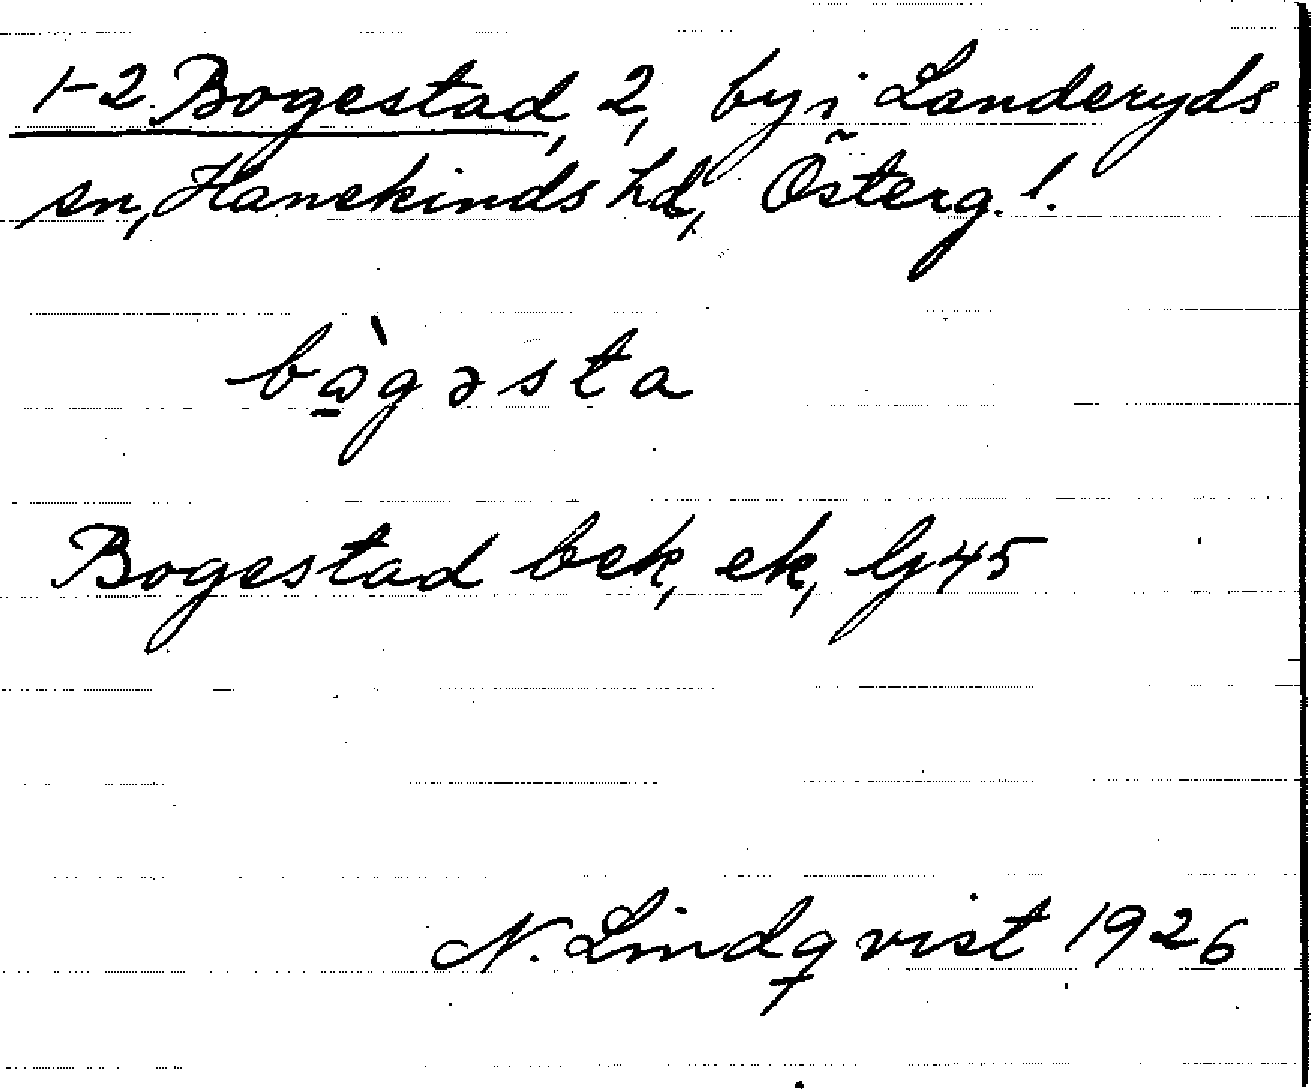 1-2 Bogestad, 2, by i Landeryds
sn, Hanekinds hd, Österg. l.
bɷ̀gəsta
Bogestad bek, ek, G45
N. Lindqvist 1926